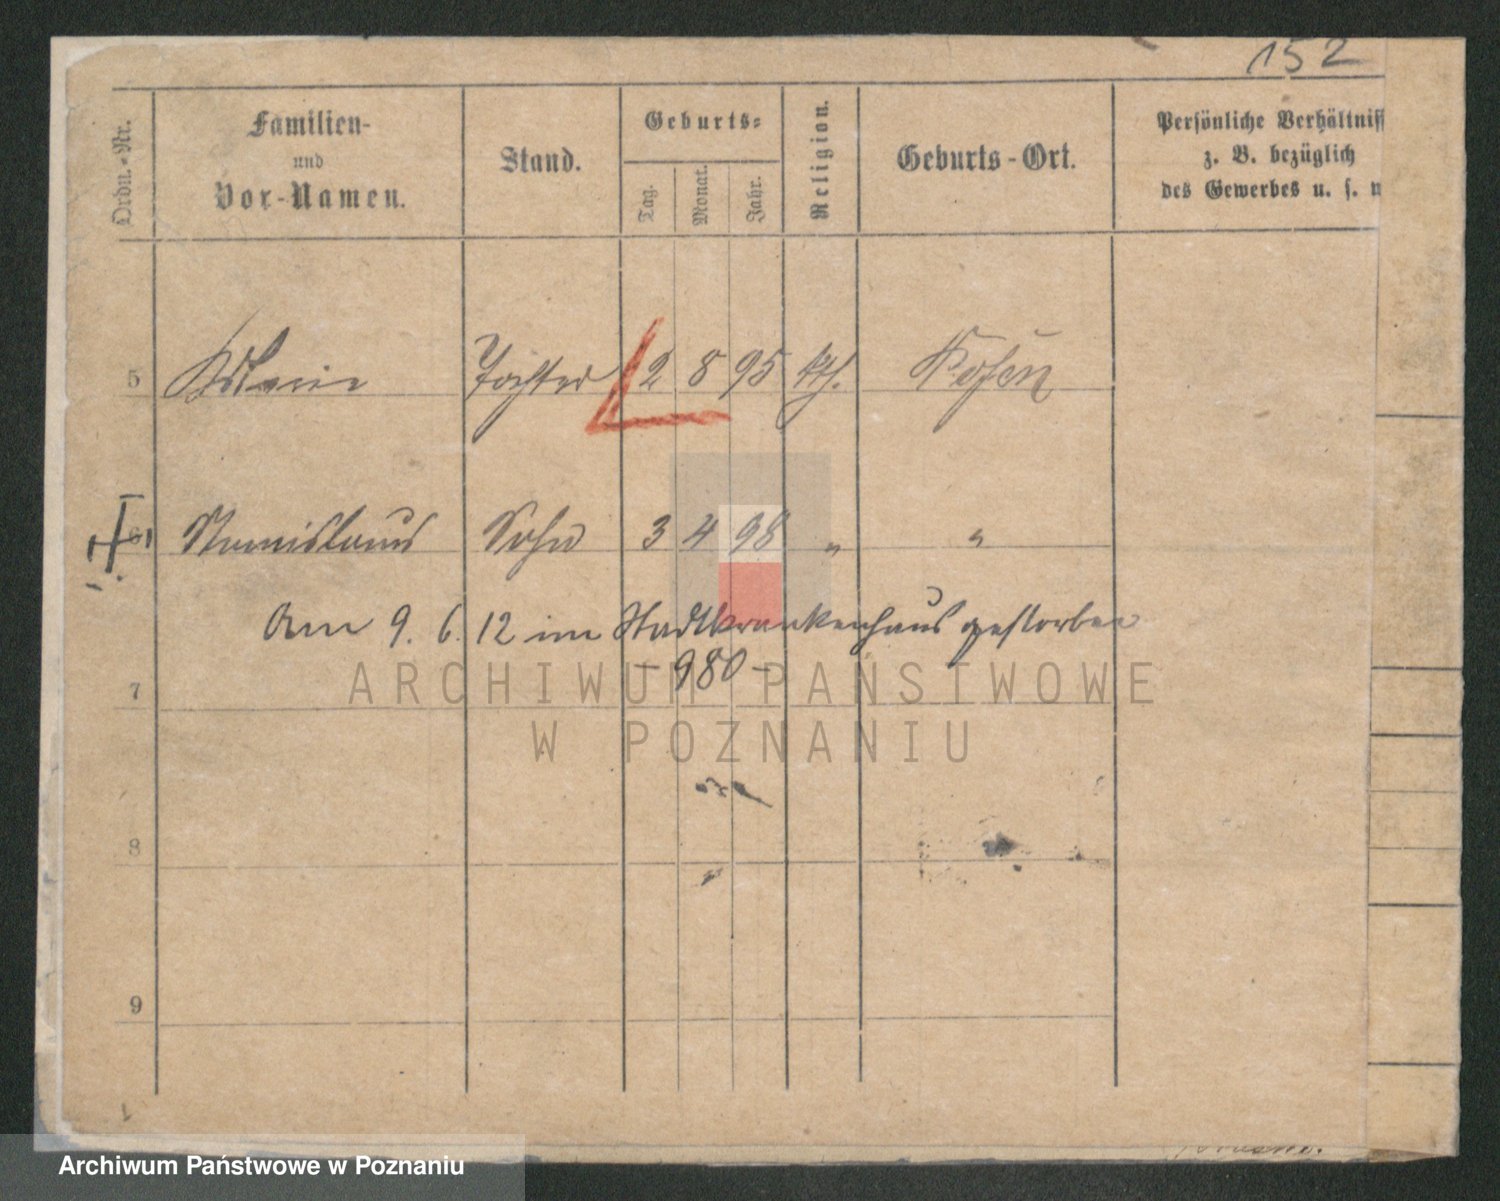 152
Ordn.-Nr.
Familien-
und
Vor-Namen.
Stand.
Geburts-
Tag.
Monat.
Jahr.
Religion.
Geburts-Ort.
Persönliche Verhältniss
z. B. bezüglich
des Gewerbes u. s. w
5 Tochter 2 8 95 kth. Posen
6 Stanislaus Sohn 3 4 98 " "
Am 9. 6. 12 im Stadtkrankenhaus gestorben
- 980 -
7
8
9
ARCHIWUM PAŃSTWOWE
W POZNANIU
Archiwum Państwowe w Poznaniu